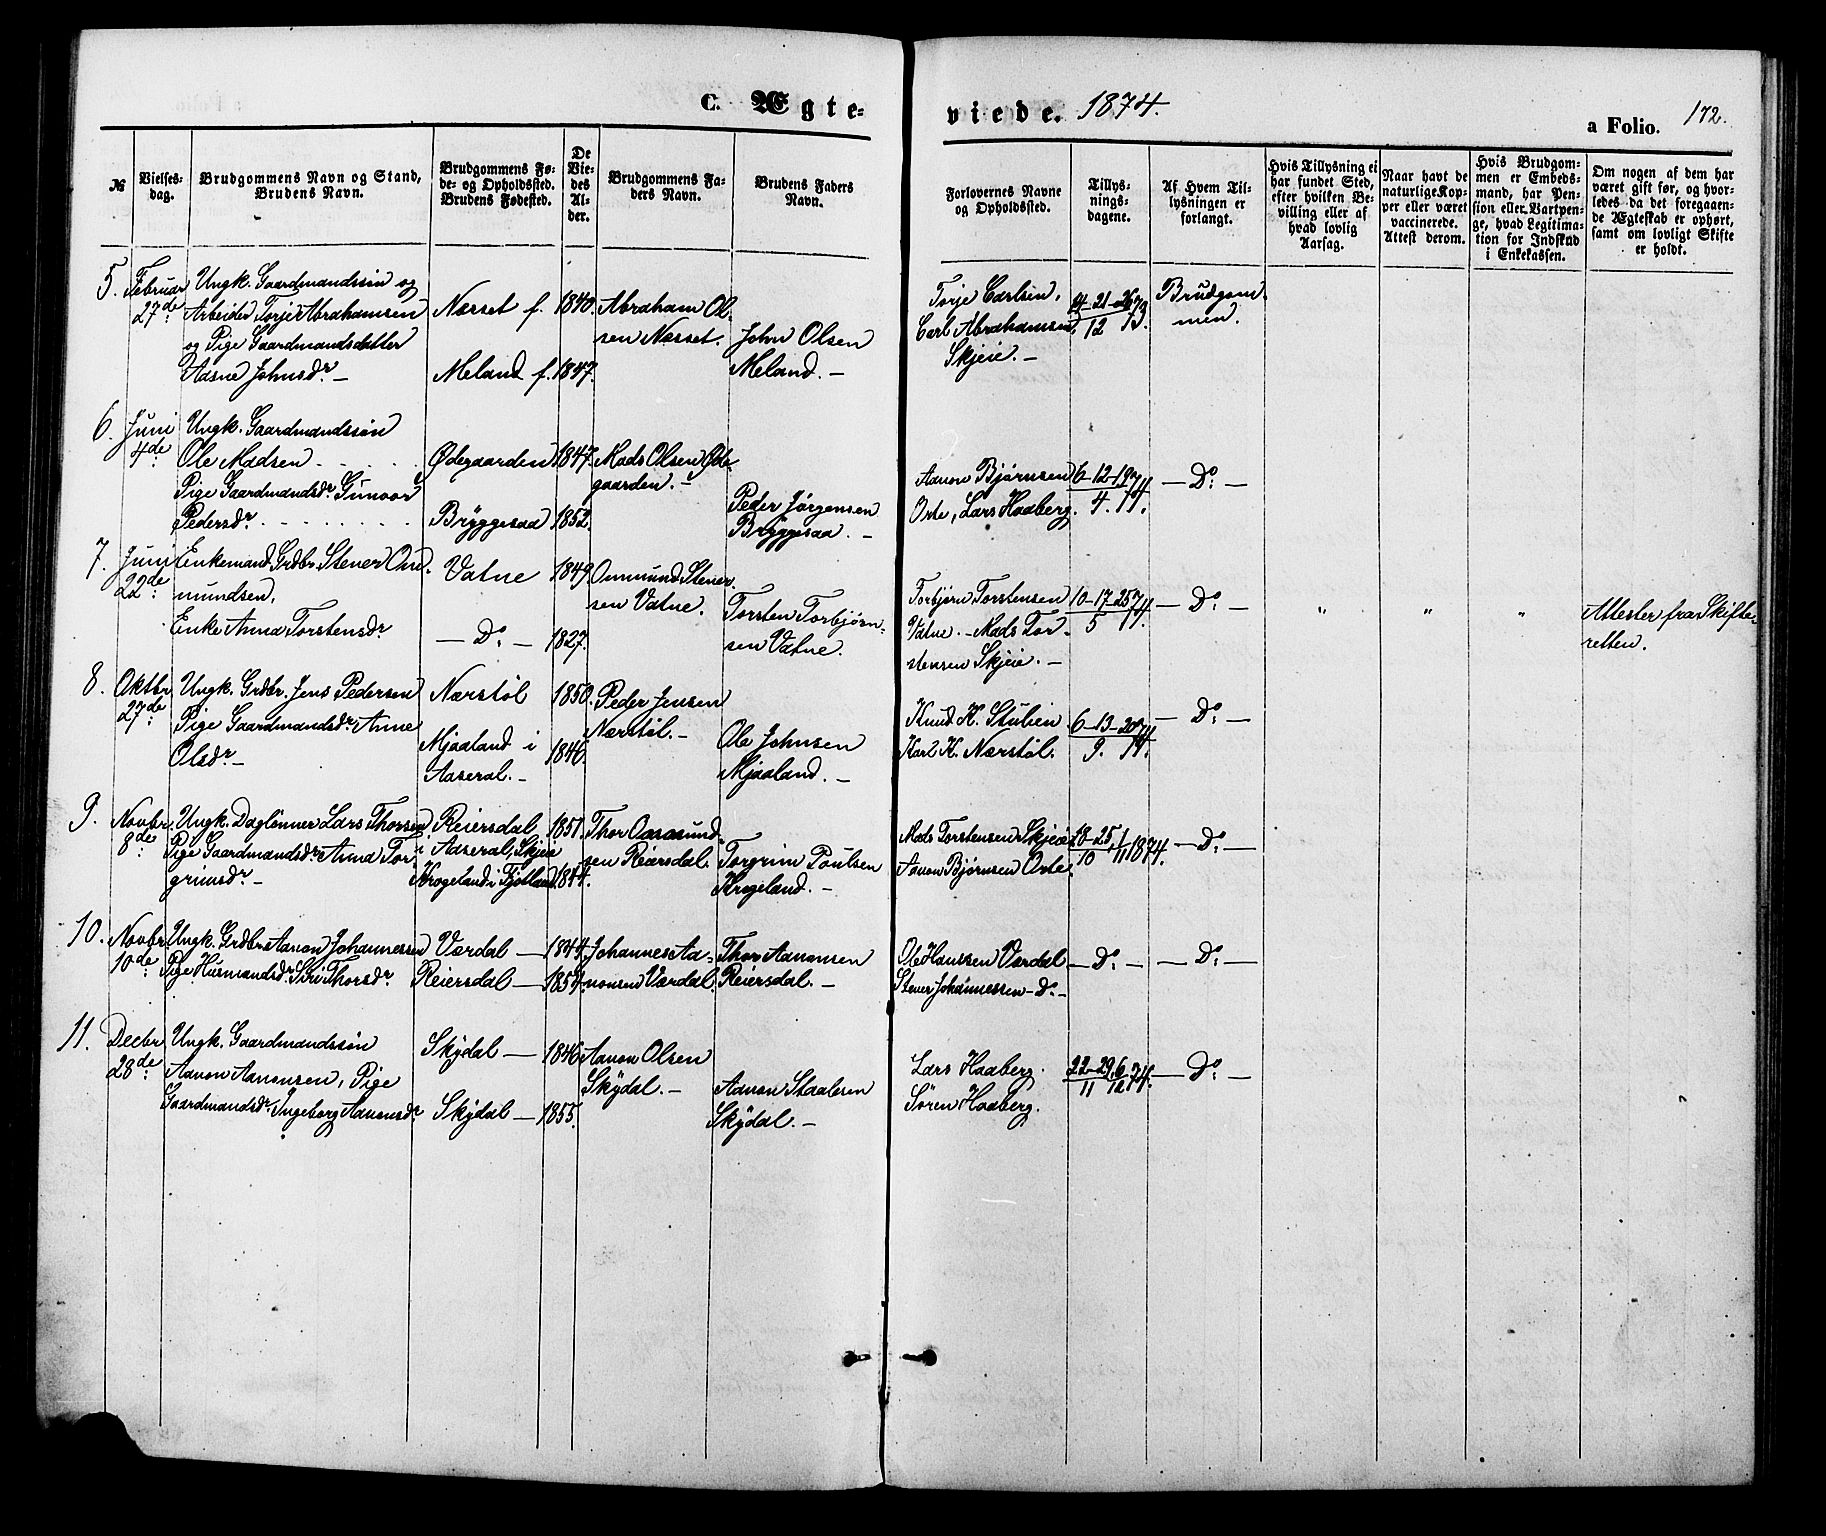 C. Ægte-
viede. 1874.
a Folio. 172.
№
Vielses-
dag.
Brudgommens Navn og Stand,
Brudens Navn.
Brudgommens Fø-
de- og Opholdssted.
Brudens Fødested.
De
Vie-
des
Al-
der.
Brudgommens Fa-
ders Navn.
Brudens Faders
Navn.
Forlovernes Navne
og Opholdssted.
Tillys-
nings-
dagene.
Af Hvem Til-
lysningen er
forlangt.
Hvis Tillysning ei
har fundet Sted,
efter hvilken Be-
villing eller af
hvad lovlig
Aarsag.
Naar havt de
naturlige Kop-
per eller været
vaccinerede.
Attest derom.
Hvis Brudgom-
men er Embeds-
mand, har Pen-
sion eller Vartpen-
ge, hvad Legitima-
tion for Indskud
i Enkekassen.
Om nogen af dem har
været gift før, og hvor-
ledes da det foregaaen-
de Ægteskab er ophørt,
samt om lovligt Skifte
er holdt.
5. Februar
27de
Ungk. Gaardmandssøn og
Arbeider Torje Abrahamsen
og Pige Gaardmandsdatter
Aasne Johnsdr. —
Næsset f. 1840.
Meland f. 1847.
Abraham Ol-
sen Næsset.
John Olsen
Meland. —
Torje Carlsen,
Carl Abrahamsen,
Skjeie. —
14-21-26/12 73.
Brudgom-
men.
6. Juni
4de
Ungk. Gaardmandssøn
Ole Madsen . . . .
Pige Gaardmandsdr. Gunvor
Pedersdr. . . . . . . . .
Ødegaarden 1847.
Bryggesaa 1852.
Mads Olsen Øde-
gaarden. —
Peder Jørgensen
Bryggesaa. —
Aanon Bjørnsen
Oste, Lars Haaberg.
6-12-19/4. 74.
— Do. —
7. Juni
22de
Enkemand Grdbr. Stener Om-
mundsen,
Enke Anna Torstensdr.
Vatne 1849.
— Do. — 1827.
Ommund Stener-
sen Vatne.
Torsten Torbjørn-
sen Vatne.
Torbjørn Torstensen
Vatne. — Mads Tor-
stensen Skjeie. —
10-17-25/5 74.
— Do. —
" " "
Attester fra Skifte-
retten.
8. Oktbr.
27de
Ungk. Grdbr. Jens Pedersen
Pige Gaardmandsdr. Anne
Olsdr. —
Nærstøl 1850.
Mjaaland i
Aaseral. — 1846.
Peder Jensen
Nærstøl. —
Ole Johnsen
Mjaaland. —
Knud K. Stulien
Karl K. Nærstøl.
6-13-20/9. 74.
— Do. —
9. Novbr.
8de
Ungk. Daglønner Lars Thorsen
Pige Gaardmandsdr. Anna Tor-
grimsdr. —
Reiersdal 1851.
i Aaseral, Skjeie
Krogeland i Fjotland 1844.
Thor Aasmund-
sen Reiersdal.
Torgrim Poulsen
Krogeland. —
Mads Torstensen Skjeie
Aanon Bjørnsen Oste.
18-25/10 1/11 1874.
— Do. —
10. Novbr.
10de
Ungk. Grdbr. Aanon Johannessen
Pige Husmandsdr. Siri Thorsdr.
Værdal — 1844.
Reiersdal — 1854.
Johannes Aa-
nonsen Værdal.
Thor Aanonsen
Reiersdal. —
Ole Hanssen Værdal
Stener Johannessen — Do. —
— Do. —
— Do. —
11. Decbr.
28de
Ungk. Gaardmandssøn
Aanon Aanonsen, Pige
Gaardmandsdr. Ingeborg Aanonsdr.
Skydal — 1846.
Skydal — 1855.
Aanon Olsen
Skydal. —
Aanon Staalesen
Skydal. —
Lars Haaberg.
Søren Haaberg.
22-29/11 6/12 74.
— Do. —